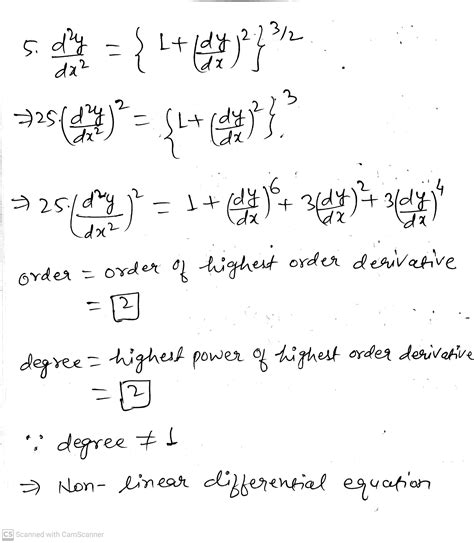 5. d²y/dx² = { 1 + (dy/dx)² }^3/2
⇒ 25.(d²y/dx²)² = { 1 + (dy/dx)² }³.
⇒ 25.(d²y/dx²)² = 1 + (dy/dx)⁶ + 3(dy/dx)² + 3(dy/dx)⁴
order = order of highest order derivative
= 2
degree = highest power of highest order derivative
= 2
∵ degree ≠ 1
⇒ Non-linear differential equation
CS Scanned with CamScanner